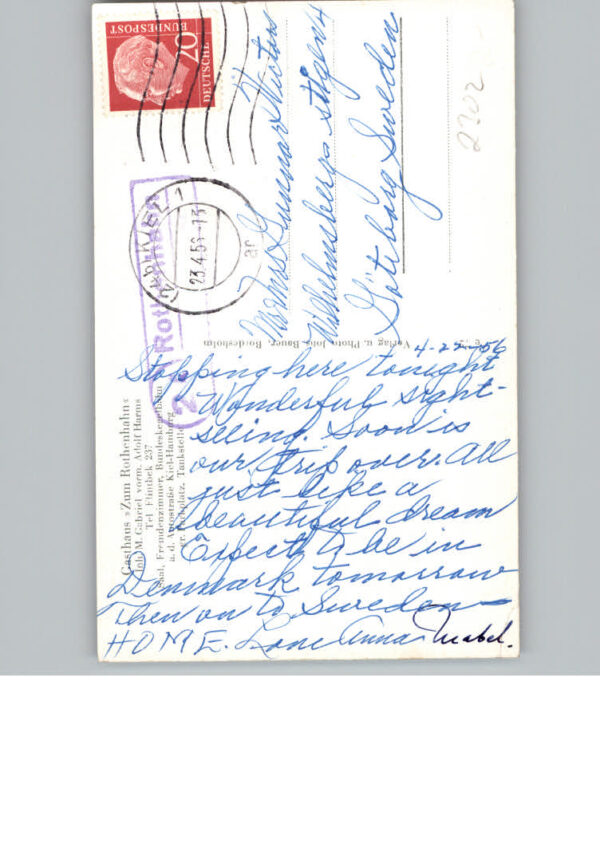 DEUTSCHE
BUNDESPOST
20
23.4.56-13
Rothenhahn
Gunnar
Wilhelmsbergs stigen 4
Göteborg Sweden
2302
Verlag u. Photo Bauer, Bordesholm
Gasthaus »Zum Rothenhahn«
M. Gabriel vorm. Adolf Harms
Tel Flintbek 237
Saal, Fremdenzimmer, Bundeskegelbahn
a. d. Autostraße Kiel-Hamburg
gr. Parkplatz, Tankstelle
4-22-56
Stopping here tonight
Wonderful sight-
seeing. Soon is
our trip over. All
just like a
beautiful dream
Expect to be in
Denmark tomorrow
Then on to Sweden
HOME. Love Anna Mabel.